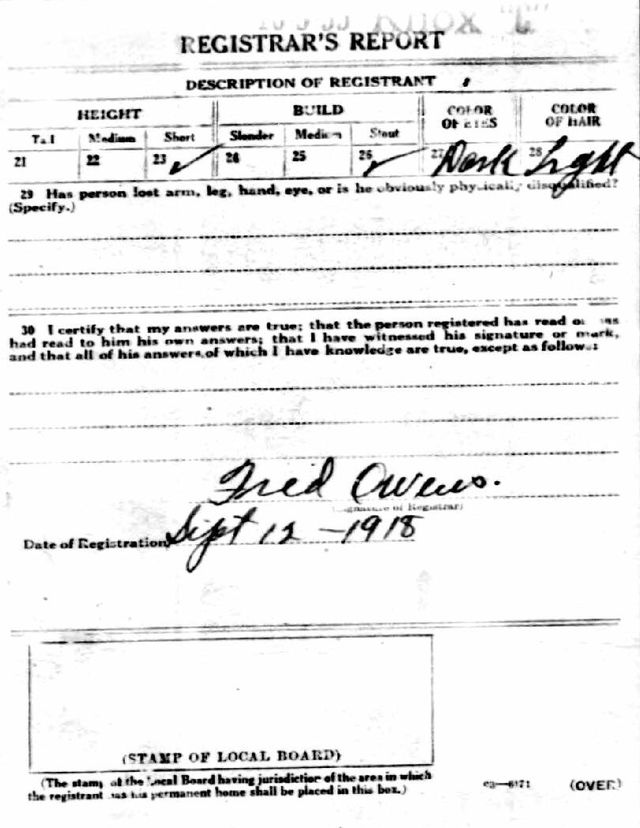 Knox "L"
REGISTRAR'S REPORT
DESCRIPTION OF REGISTRANT
HEIGHT BUILD COLOR OF EYES COLOR OF HAIR
Tall Medium Short Slender Medium Stout
21 22 23 ✓ 24 25 26 ✓ 27 Dark 28 Light
29 Has person lost arm, leg, hand, eye, or is he obviously physically disqualified?
(Specify.)
30 I certify that my answers are true; that the person registered has read or has
had read to him his own answers; that I have witnessed his signature or mark,
and that all of his answers of which I have knowledge are true, except as follows:
Fred Owens.
(Signature of Registrar)
Date of Registration Sept 12 - 1918
(STAMP OF LOCAL BOARD)
(The stamp of the Local Board having jurisdiction of the area in which
the registrant has his permanent home shall be placed in this box.)
03—6171 (OVER)